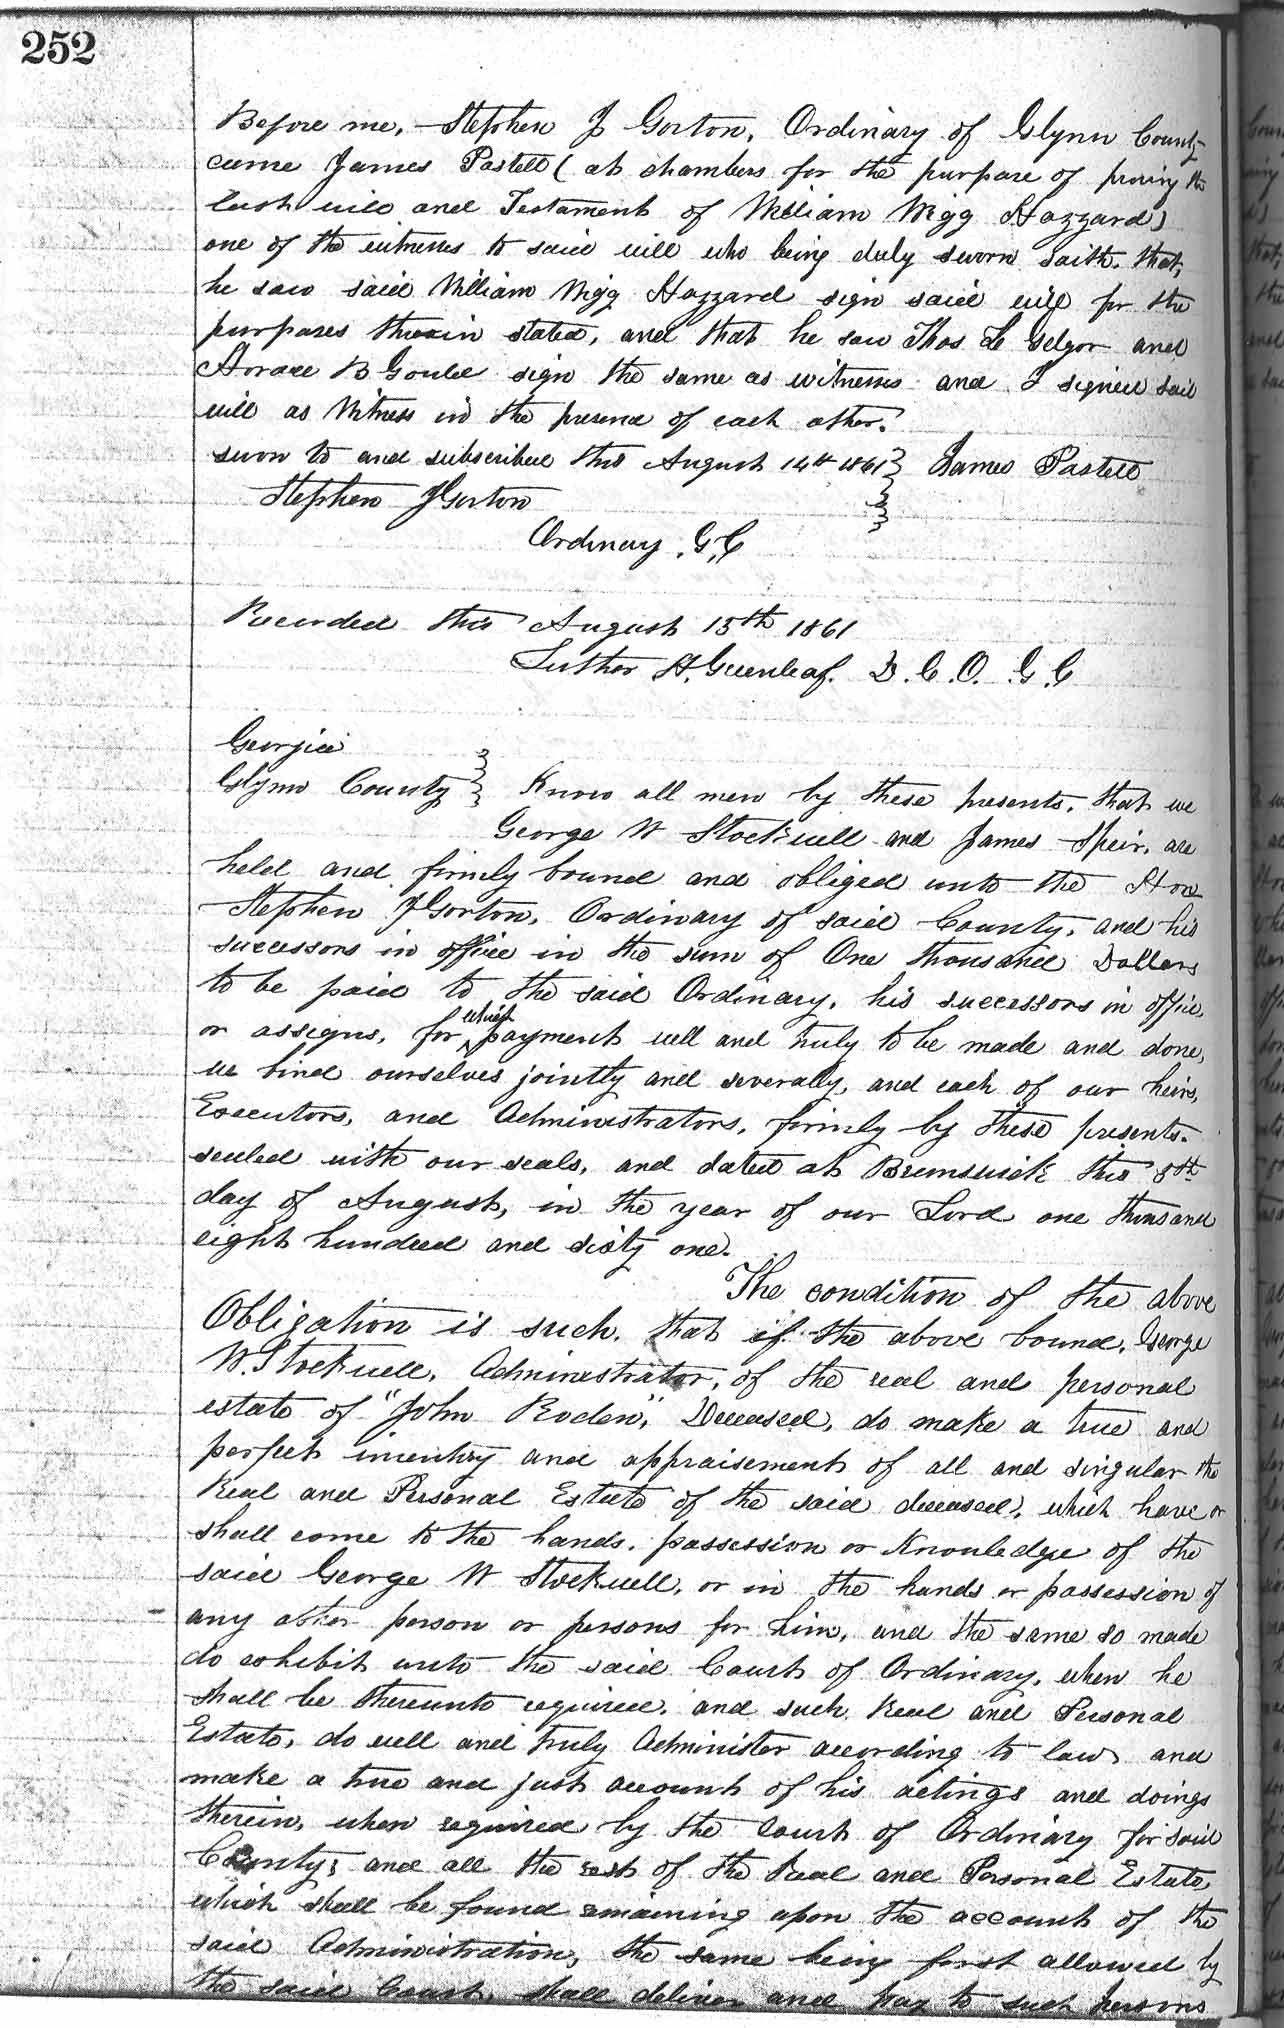 252
Before me, Stephen J Gorton, Ordinary of Glynn County
came James Postell ( at chambers for the purpose of proving the
last will and Testament of William Wigg Hazzard)
one of the witnesses to said will who being duly sworn saith, that,
he saw said William Wigg Hazzard sign said will for the
purposes therein stated, and that he saw Thos
Horace B Gould sign the same as witnesses and I signed said
will as Witness in the presence of each other.
sworn to and subscribed this August 14th 1861 } James Postell
Stephen J Gorton
Ordinary G, C
Recorded this August 15th 1861
Luther H. Greenleaf. D. C. O. G. C
Georgia
Glynn County } Know all men by these presents, that we
George W Stockwell and James Speir, are
held and firmly bound and obliged unto the Hon
Stephen J Gorton, Ordinary of said County, and his
successors in office in the sum of One thousand Dollars
to be paid to the said Ordinary, his successors in office,
or assigns, for which payment well and truly to be made and done,
we bind ourselves jointly and severally, and each of our heirs,
Executors, and Administrators, firmly by these presents.
sealed with our seals, and dated at Brunswick this 8th
day of August, in the year of our Lord one thousand
eight hundred and sixty one.
The condition of the above
Obligation is such, that if the above bound, George
W. Stockwell, Administrator, of the real and personal
estate of "John Roden", Deceased, do make a true and
perfect inventory and appraisement of all and singular the
Real and Personal Estate of the said deceased, which have or
shall come to the hands, possession or Knowledge of the
said George W Stockwell, or in the hands or possession of
any other person or persons for him, and the same so made
do exhibit unto the said Court of Ordinary, when he
shall be thereunto required, and such Real and Personal
Estate, do well and truly Administer according to law, and
make a true and just account of his actings and doings
therein, when required by the Court of Ordinary for said
County; and all the rest of the Real and Personal Estate,
which shall be found remaining upon the account of the
said Administration, the same being first allowed by
the said Court, shall deliver and pay to such persons